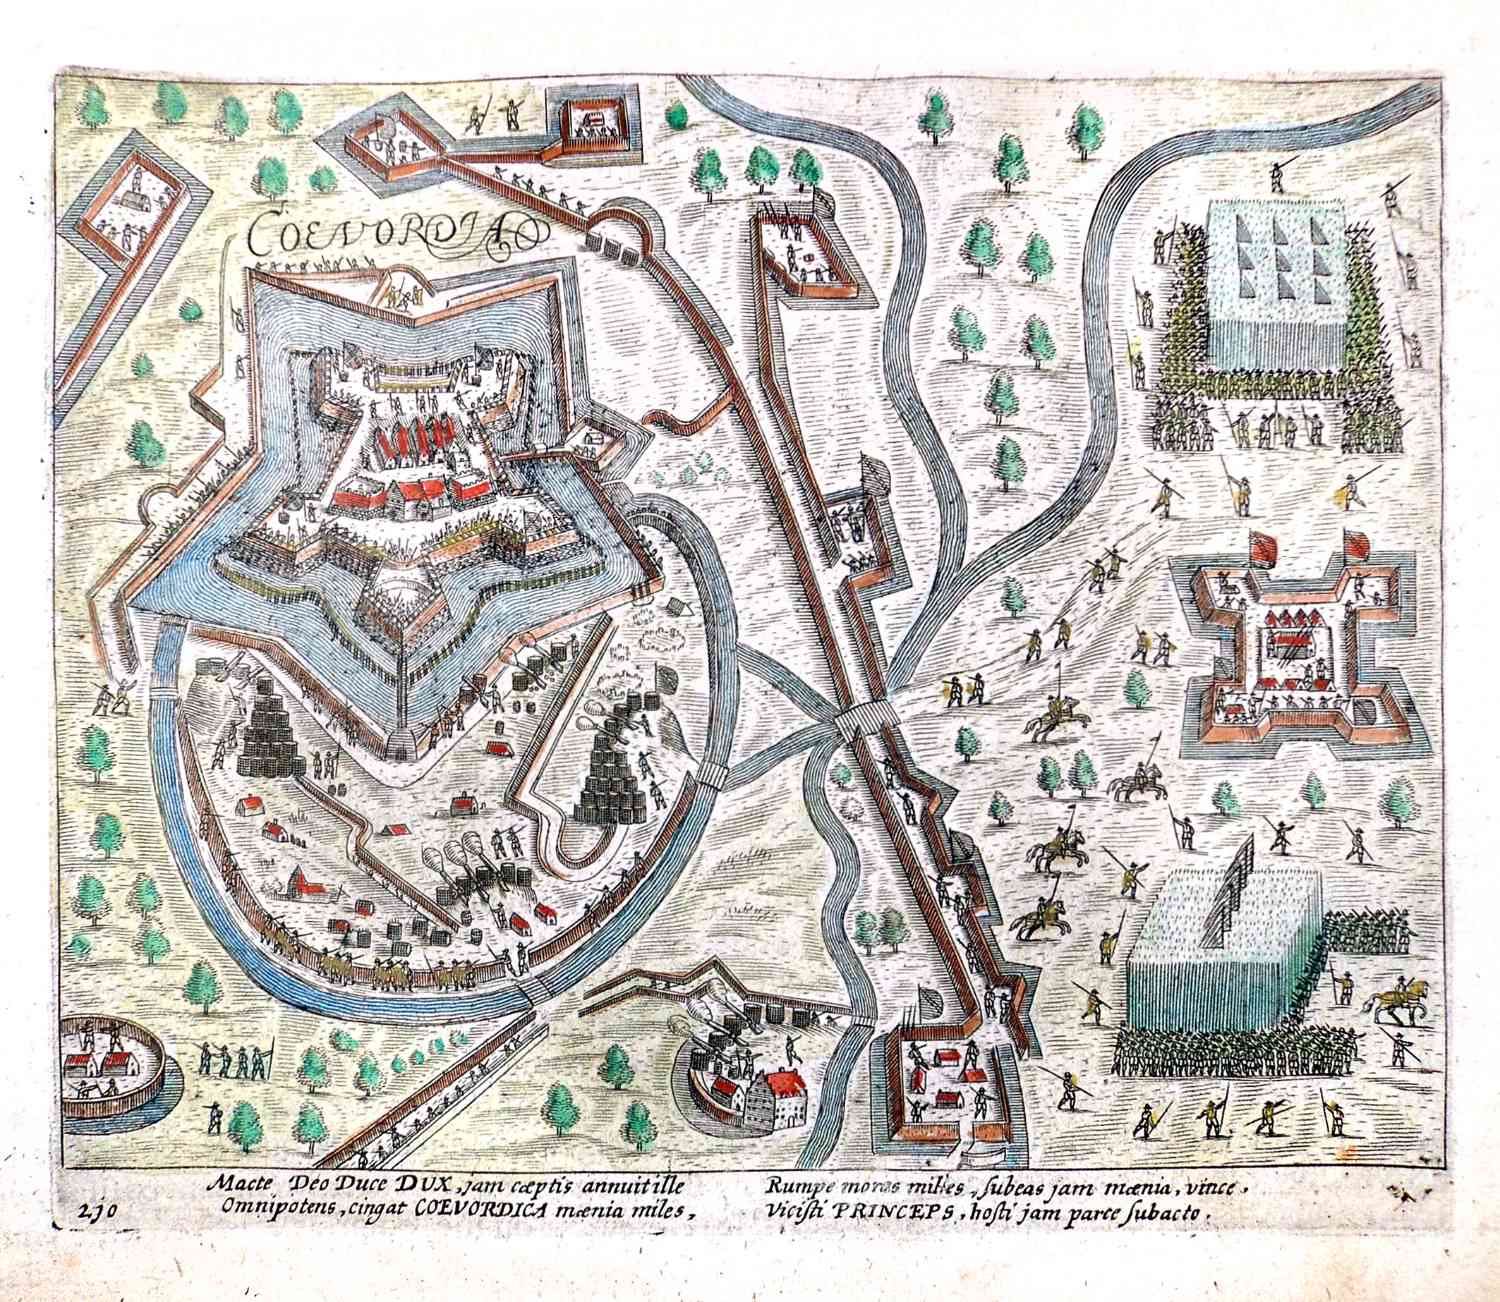 COEVORDIA
Macte Deo Duce DUX, jam cæptis annuit ille
Omnipotens, cingat COEVORDICA mænia miles,
Rumpe moras miles, subeas jam mænia, vince.
Vicisti PRINCEPS, hosti jam parce subacto.
230